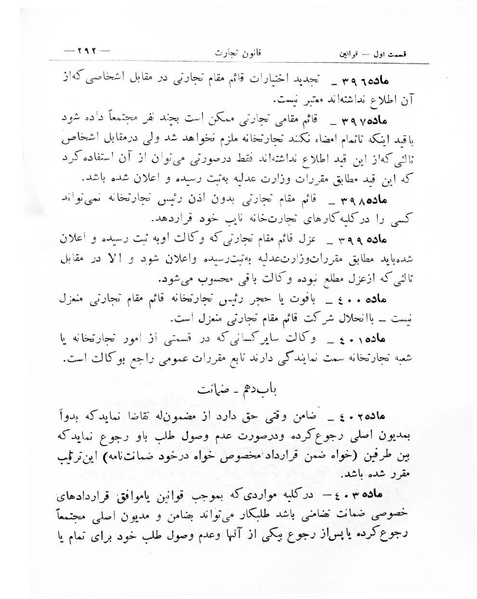 قسمت اول — قوانین
قانون تجارت
— ۲۹۲ —
ماده ۳۹۶ـ تجدید اختیارات قائم مقام تجارتی در مقابل اشخاصی که از
آن اطلاع نداشته‌اند معتبر نیست.
ماده ۳۹۷ـ قائم مقامی تجارتی ممکن است بچند نفر مجتمعاً داده شود
باقید اینکه تاتمام امضاء نکنند تجارتخانه ملزم نخواهد شد ولی درمقابل اشخاص
ثالثی که از این قید اطلاع نداشته‌اند فقط درصورتی می‌توان از آن استفاده کرد
که این قید مطابق مقررات وزارت عدلیه به‌ثبت رسیده و اعلان شده باشد.
ماده ۳۹۸ـ قائم مقام تجارتی بدون اذن رئیس تجارتخانه نمی‌تواند
کسی را درکلیه کارهای تجارت‌خانه نایب خود قراردهد.
ماده ۳۹۹ـ عزل قائم مقام تجارتی که وکالت او به ثبت رسیده و اعلان
شده باید مطابق مقررات وزارت عدلیه به‌ثبت رسیده واعلان شود و الا در مقابل
ثالثی که ازعزل مطلع نبوده وکالت باقی محسوب می‌شود.
ماده ۴۰۰ـ بافوت یا حجر رئیس تجارتخانه قائم مقام تجارتی منعزل
نیست ـ باانحلال شرکت قائم مقام تجارتی منعزل است.
ماده ۴۰۱ـ وکالت سایر کسانی که در قسمتی از امور تجارتخانه یا
شعبه تجارتخانه سمت نمایندگی دارند تابع مقررات عمومی راجع بوکالت است.
باب دهم ـ ضمانت
ماده ۴۰۲ـ ضامن وقتی حق دارد از مضمون‌له تقاضا نماید که بدواً
بمدیون اصلی رجوع کرده ودرصورت عدم وصول طلب باو رجوع نماید که
بین طرفین (خواه ضمن قرارداد مخصوص خواه درخود ضمانت‌نامه) این‌ترتیب
مقرر شده باشد.
ماده ۴۰۳ـ درکلیه مواردی که بموجب قوانین یاموافق قراردادهای
خصوصی ضمانت تضامنی باشد طلبکار می‌تواند بضامن و مدیون اصلی مجتمعاً
رجوع کرده یا پس از رجوع بیکی از آنها وعدم وصول طلب خود برای تمام یا